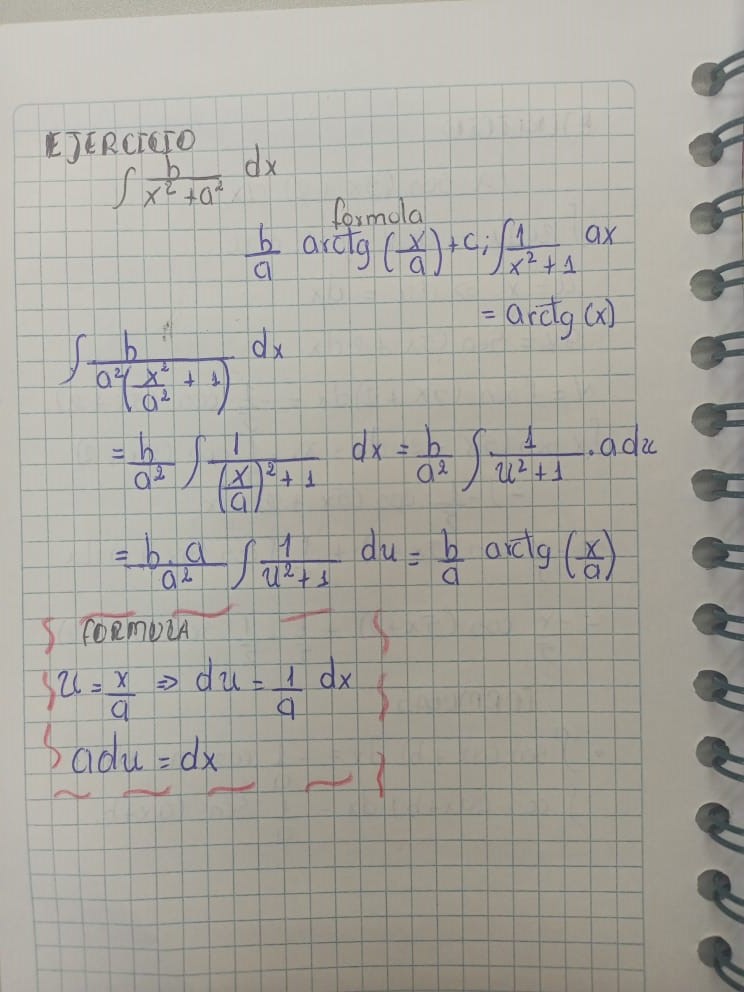 EJERCICIO
∫ b/(x² + a²) dx
formola
b/a arctg (x/a) + c; ∫ 1/(x² + 1) ax
= arctg (x)
∫ b/(a²(x²/a² + 1)) dx
= b/a² ∫ 1/((x/a)² + 1) dx = b/a² ∫ 1/(u² + 1) . adu
= b.a/a² ∫ 1/(u² + 1) du = b/a arctg (x/a)
FORMULA
u = x/a ⇒ du = 1/a dx
adu = dx